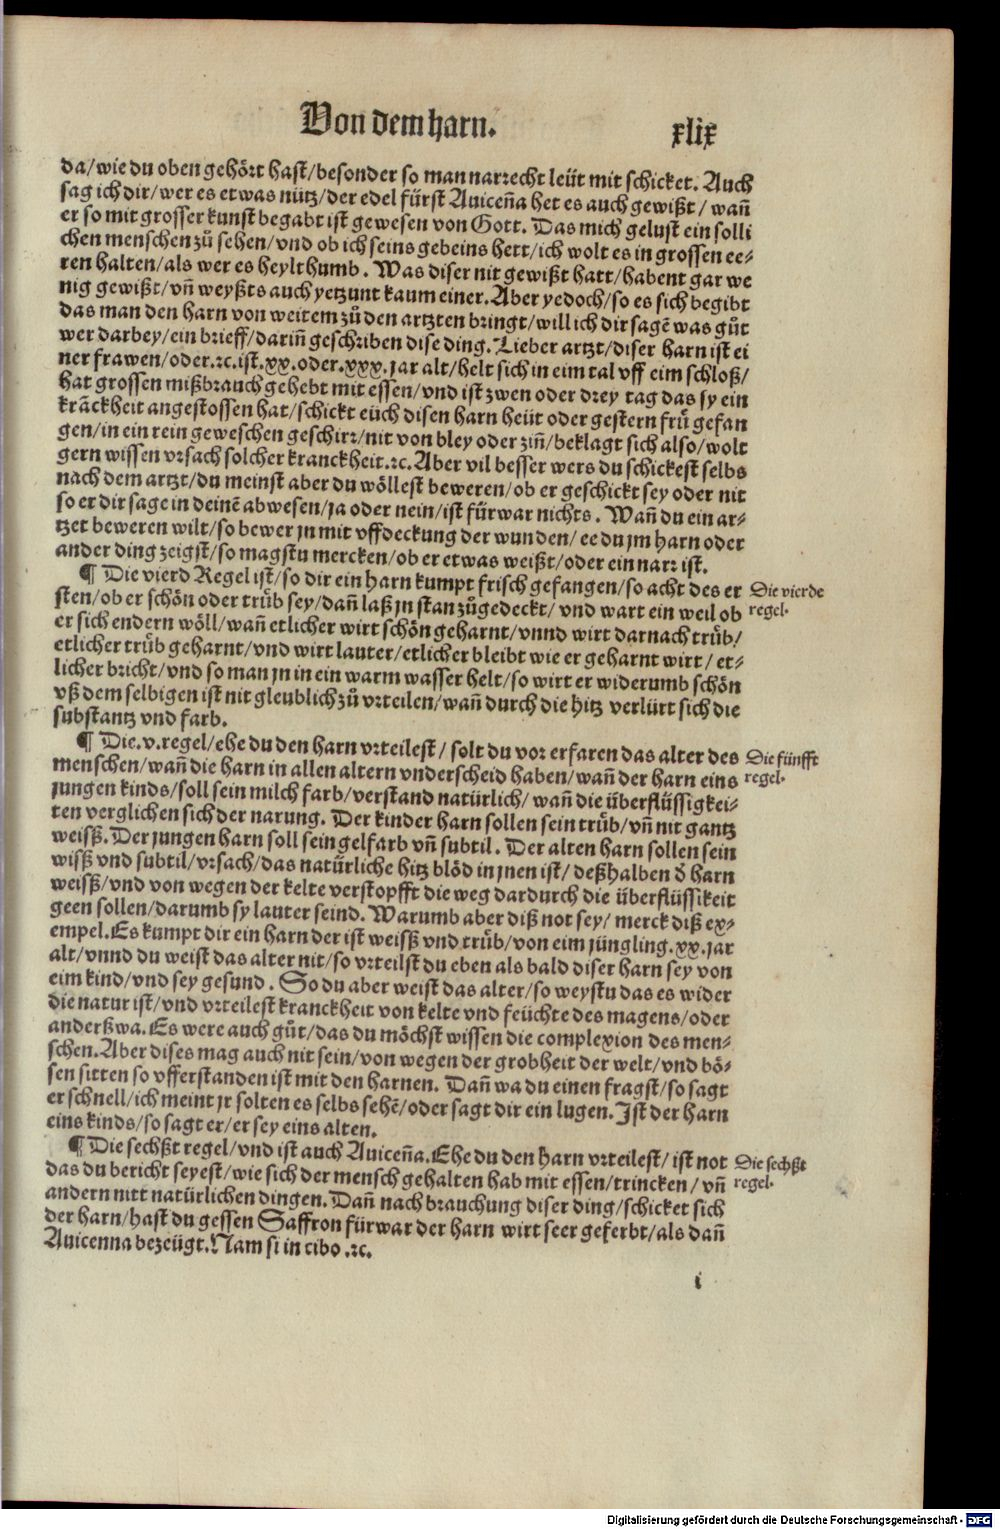 Von dem harn.
xlix
da/wie du oben gehört hast/besonder so man narrecht leüt mit schicket. Auch
sag ich dir/wer es etwas nütz/der edel fürst Auiceña het es auch gewißt/ wañ
er so mit grosser kunst begabt ist gewesen von Gott. Das mich gelust ein solli
chen menschen zů sehen/vnd ob ich seins gebeins hett/ich wolt es in grossen ee⸗
ren halten/als wer es heylthumb. Was diser nit gewißt hatt/habent gar we
nig gewißt/vñ weyßts auch yetzunt kaum einer. Aber yedoch/so es sich begibt
das man den harn von weitem zů den artzten bringt/will ich dir sagē was gůt
wer darbey/ein brieff/dariñ geschriben dise ding. Lieber artzt/diser harn ist ei
ner frawen/oder.ꝛc.ist.xx.oder.xxx.jar alt/helt sich in eim tal vff eim schloß/
hat grossen mißbrauch gehebt mit essen/vnd ist zwen oder drey tag das sy ein
krāckheit angestossen hat/schickt euch disen harn heüt oder gestern frů gefan
gen/in ein rein geweschen geschirꝛ/nit von bley oder ziñ/beklagt sich also/wolt
gern wissen vrsach solcher kranckheit.ꝛc. Aber vil besser wers du schickest selbs
nach dem artzt/du meinst aber du wöllest beweren/ob er geschickt sey oder nit
so er dir sage in deinē abwesen/ja oder nein/ist fürwar nichts. Wañ du ein ar⸗
tzet beweren wilt/so bewer jn mit vffdeckung der wunden/ee du jm harn oder
ander ding zeigst/so magstu mercken/ob er etwas weißt/oder ein narꝛ ist.
¶ Die vierd Regel ist/so dir ein harn kumpt frisch gefangen/so acht des er
Die vierde
regel.
sten/ob er schön oder trüb sey/dañ laß jn stan zůgedeckt/ vnd wart ein weil ob
er sich endern wöll/wañ etlicher wirt schön geharnt/vnnd wirt darnach trüb/
etlicher trüb geharnt/vnd wirt lauter/etlicher bleibt wie er geharnt wirt/ et⸗
licher bricht/vnd so man jn in ein warm wasser helt/so wirt er widerumb schön
vß dem selbigen ist nit gleublich zů vrteilen/wañ durch die hitz verlürt sich die
substantz vnd farb.
¶ Die.v.regel/ehe du den harn vrteilest/ solt du vor erfaren das alter des
Die fünfft
regel.
menschen/wañ die harn in allen altern vnderscheid haben/wañ der harn eins
jungen kinds/soll sein milch farb/verstand natürlich/ wañ die überflüssigkei⸗
ten verglichen sich der narung. Der kinder harn sollen sein trüb/vñ nit gantz
weisß. Der jungen harn soll sein gelfarb vñ subtil. Der alten harn sollen sein
wisß vnd subtil/vrsach/das natürliche hitz blöd in jnen ist/ deßhalben ð harn
weisß/vnd von wegen der kelte verstopfft die weg dardurch die überflüssikeit
geen sollen/darumb sy lauter seind. Warumb aber diß not sey/ merck diß ex⸗
empel. Es kumpt dir ein harn der ist weisß vnd trüb/von eim jüngling.xx.jar
alt/vnnd du weist das alter nit/so vrteilst du eben als bald diser harn sey von
eim kind/vnd sey gesund. So du aber weist das alter/so weystu das es wider
die natur ist/vnd vrteilest kranckheit von kelte vnd feüchte des magens/oder
anderßwa. Es were auch gůt/das du möchst wissen die complexion des men⸗
schen. Aber dises mag auch nit sein/von wegen der grobheit der welt/vnd bö⸗
sen sitten so vfferstanden ist mit den harnen. Dañ wa du einen fragst/so sagt
er schnell/ich meint jr solten es selbs sehē/oder sagt dir ein lugen. Ist der harn
eins kinds/so sagt er/er sey eins alten.
¶ Die sechßt regel/vnd ist auch Auiceña. Ehe du den harn vrteilest/ ist not
Die sechßt
regel.
das du bericht seyest/wie sich der mensch gehalten hab mit essen/trincken/ vñ
andern nitt natürlichen dingen. Dañ nach brauchung diser ding/schicket sich
der harn/hast du gessen Saffron fürwar der harn wirt seer geferbt/als dañ
Auicenna bezeügt. Nam si in cibo.ꝛc.
i
Digitalisierung gefördert durch die Deutsche Forschungsgemeinschaft - DFG